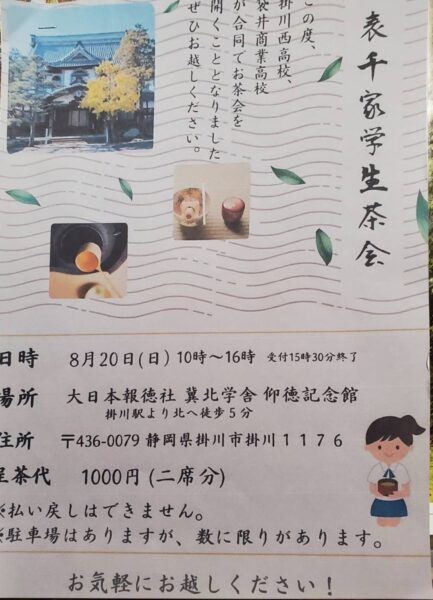 表千家学生茶会
この度、
掛川西高校、
袋井商業高校
が合同でお茶会を
開くこととなりました
ぜひお越しください。
日時 8月20日(日) 10時~16時 受付15時30分終了
場所 大日本報徳社 冀北学舎 仰徳記念館
掛川駅より北へ徒歩5分
住所 〒436-0079 静岡県掛川市掛川1176
呈茶代 1000円 (二席分)
※払い戻しはできません。
※駐車場はありますが、数に限りがあります。
お気軽にお越しください!